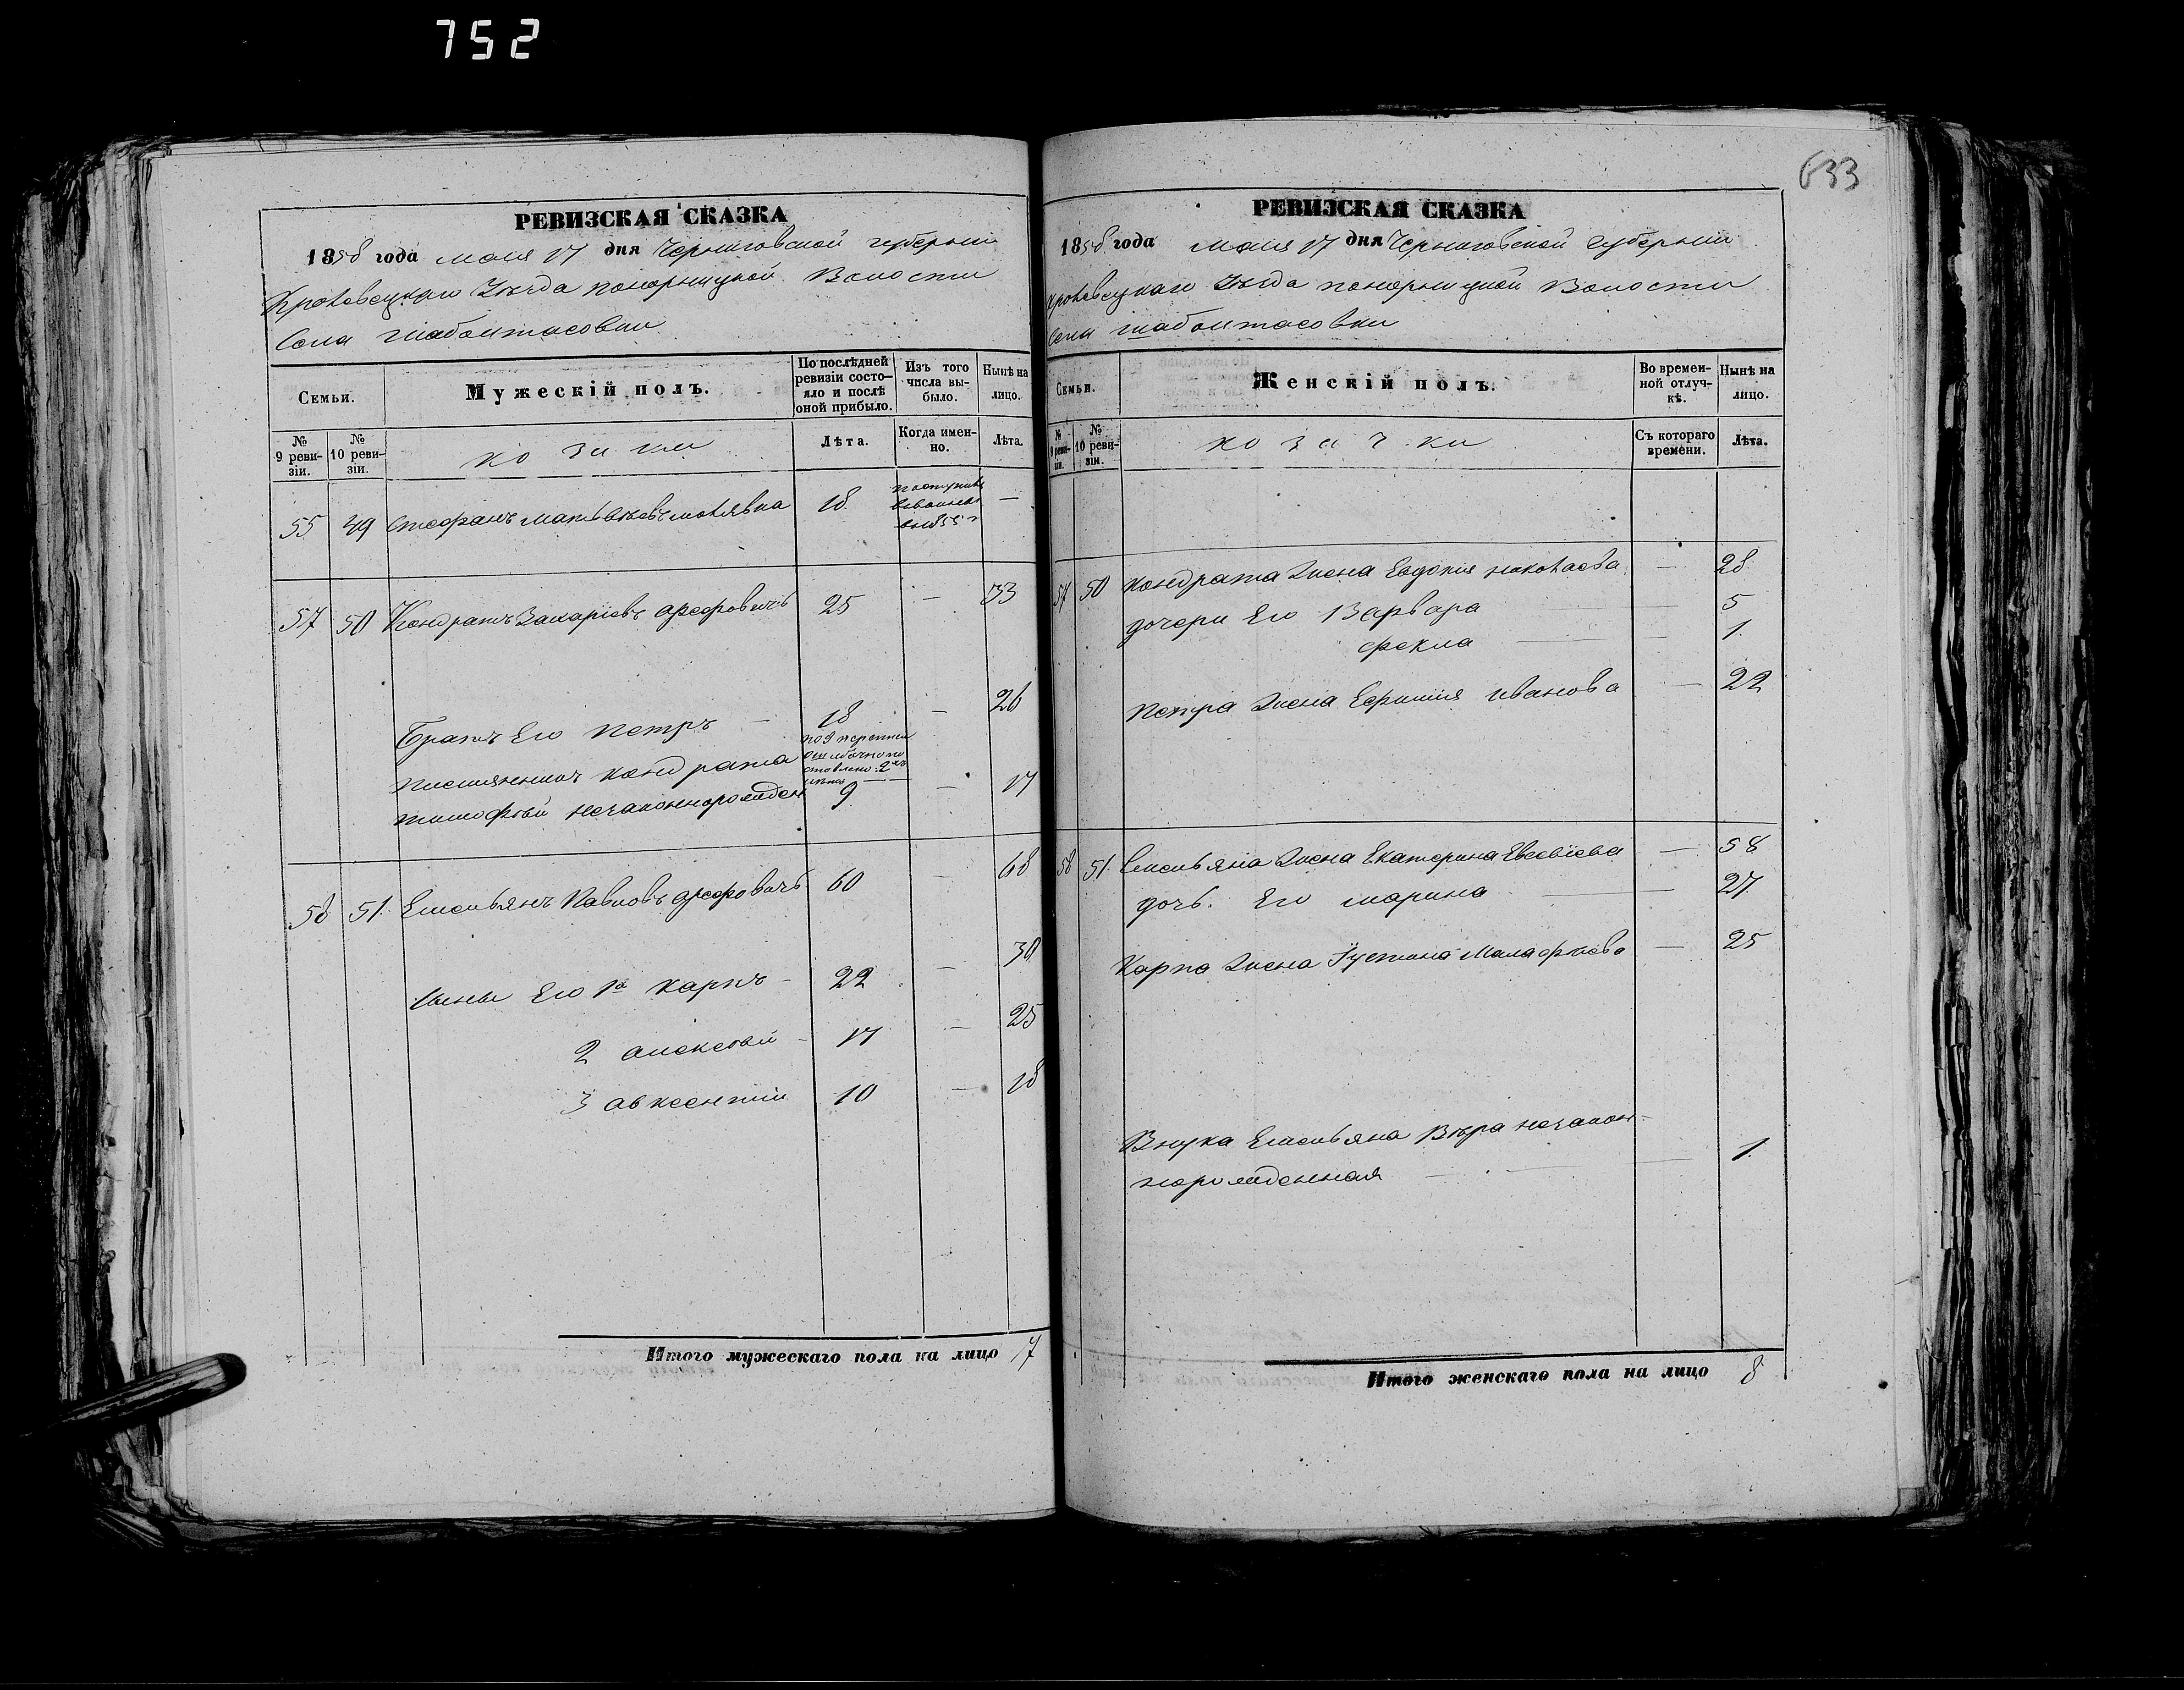 752
633
РЕВИЗСКАЯ СКАЗКА
1858 года маия 17 дня Черниговской губерніи
Кролевецкаго Уѣзда понорницкой Волости
Села Шабалтасовки
Семьи.
Мужескій полъ.
По послѣдней ревизіи состояло и послѣ оной прибыло.
Изъ того числа выбыло.
Нынѣ на лицо.
№ 9 ревизіи.
№ 10 ревизіи.
козаки
Лѣта.
Когда именно.
Лѣта.
55 49 Стефанъ Матвѣевъ 18 поступилъ —
57 50 Кондратъ Захаріевъ Арефовичъ 25 — 33
Братъ Его Петръ — 18 — 26
Племянникъ Кондрата
ошибочно
тимофѣй незаконнорожден 9 — 17
58 51. Емельянъ Павловъ Арефовичъ 60 — 68
Сыны Его 1й Карпъ — 22 — 30
2 алексѣй — 17 — 25
3 авксентій 10 — 18
Итого мужескаго пола на лицо 7
РЕВИЗСКАЯ СКАЗКА
1858 года маия 17 дня Черниговской Губерніи
кролевецкаго Уѣзда понорницкой Волости
Села шабалтасовки
Семьи.
Женскій полъ.
Во временной отлучкѣ.
Нынѣ на лицо.
№ 9 ревизіи.
№ 10 ревизіи.
козачки
Съ котораго времени.
Лѣта.
57 50 Кондрата Жена Евдокия николаева — 28
дочери Его Варвара — 5
фекла — 1.
Петра Жена Ефимия Иванова — 22
58 51. Емельяна Жена Екатерина Евсевіева — 58
дочь. Его марина — 27.
Карпа Жена Іустина Малафѣева — 25
Внука Емельяна Вѣра незакон-
норожденная — 1.
Итого женскаго пола на лицо 8